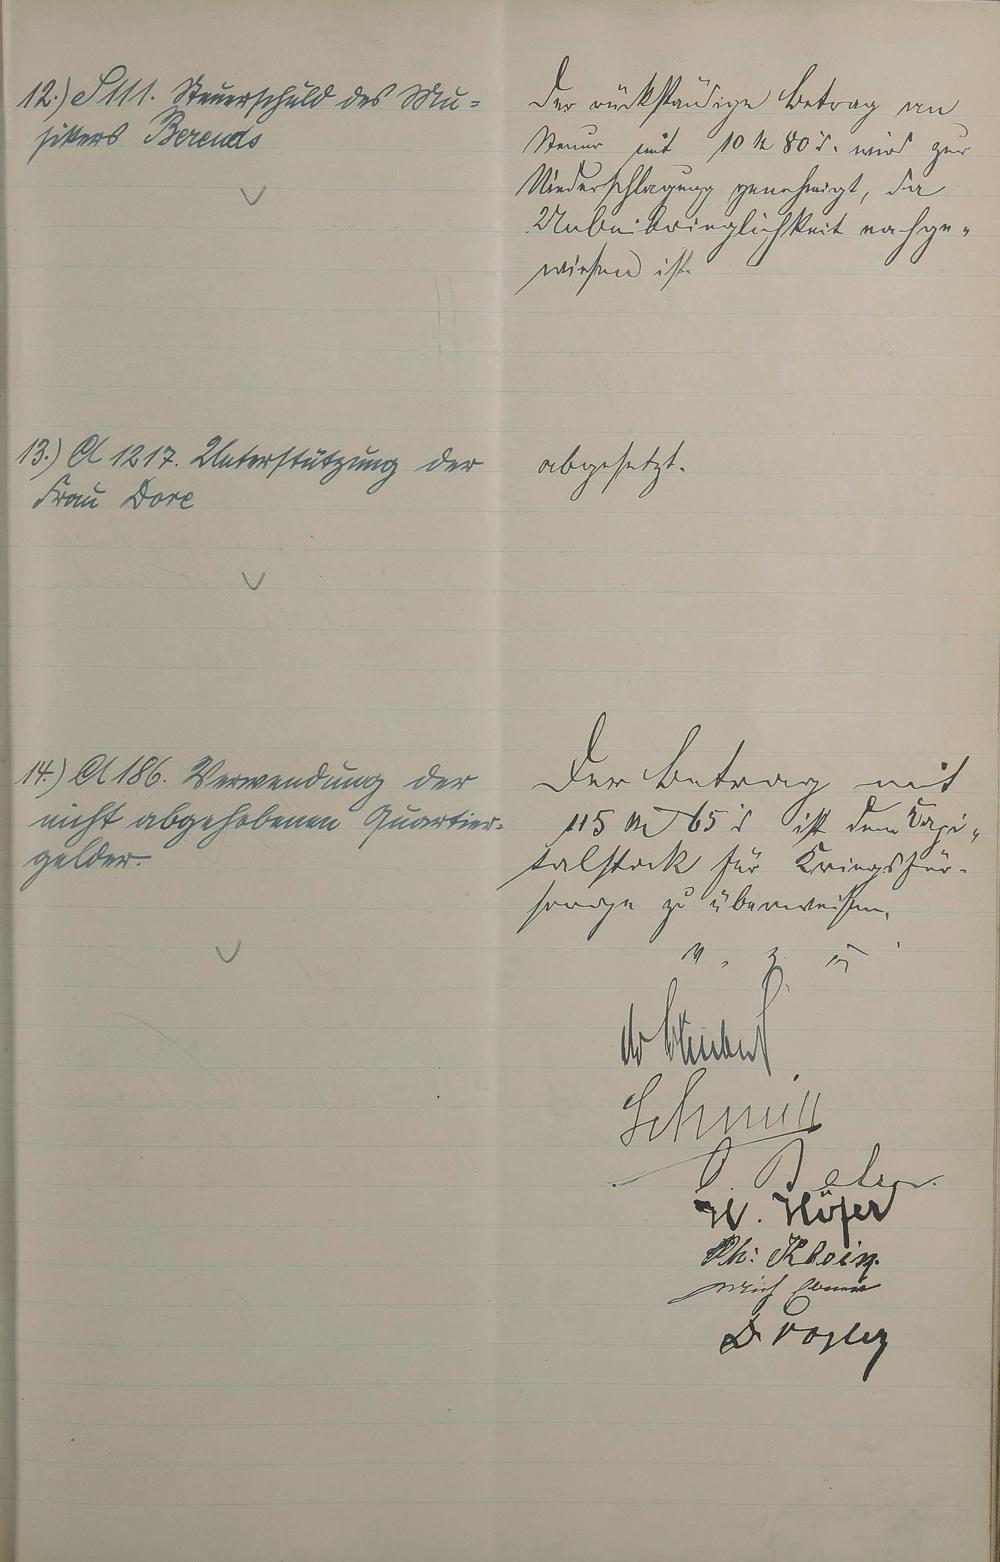 12.) S 111. Steuerschuld des Mu-
sikers Berends
Der rückständige Betrag an
Steuer mit 10 M 80 ₰. wird zur
Niederschlagung genehmigt, da
Unbeibringlichkeit nachge-
wiesen ist.
13.) A 1217. Unterstützung der
Frau Dore
abgesetzt.
14.) A 186. Verwendung der
nicht abgehobenen Quartier-
gelder.
Der Betrag mit
115 M 65 ₰ ist dem Kapi-
talstock für Kriegsfür-
sorge zu überweisen.
Schmitt
H. Höfer
Ph: Klein
D. Vogley